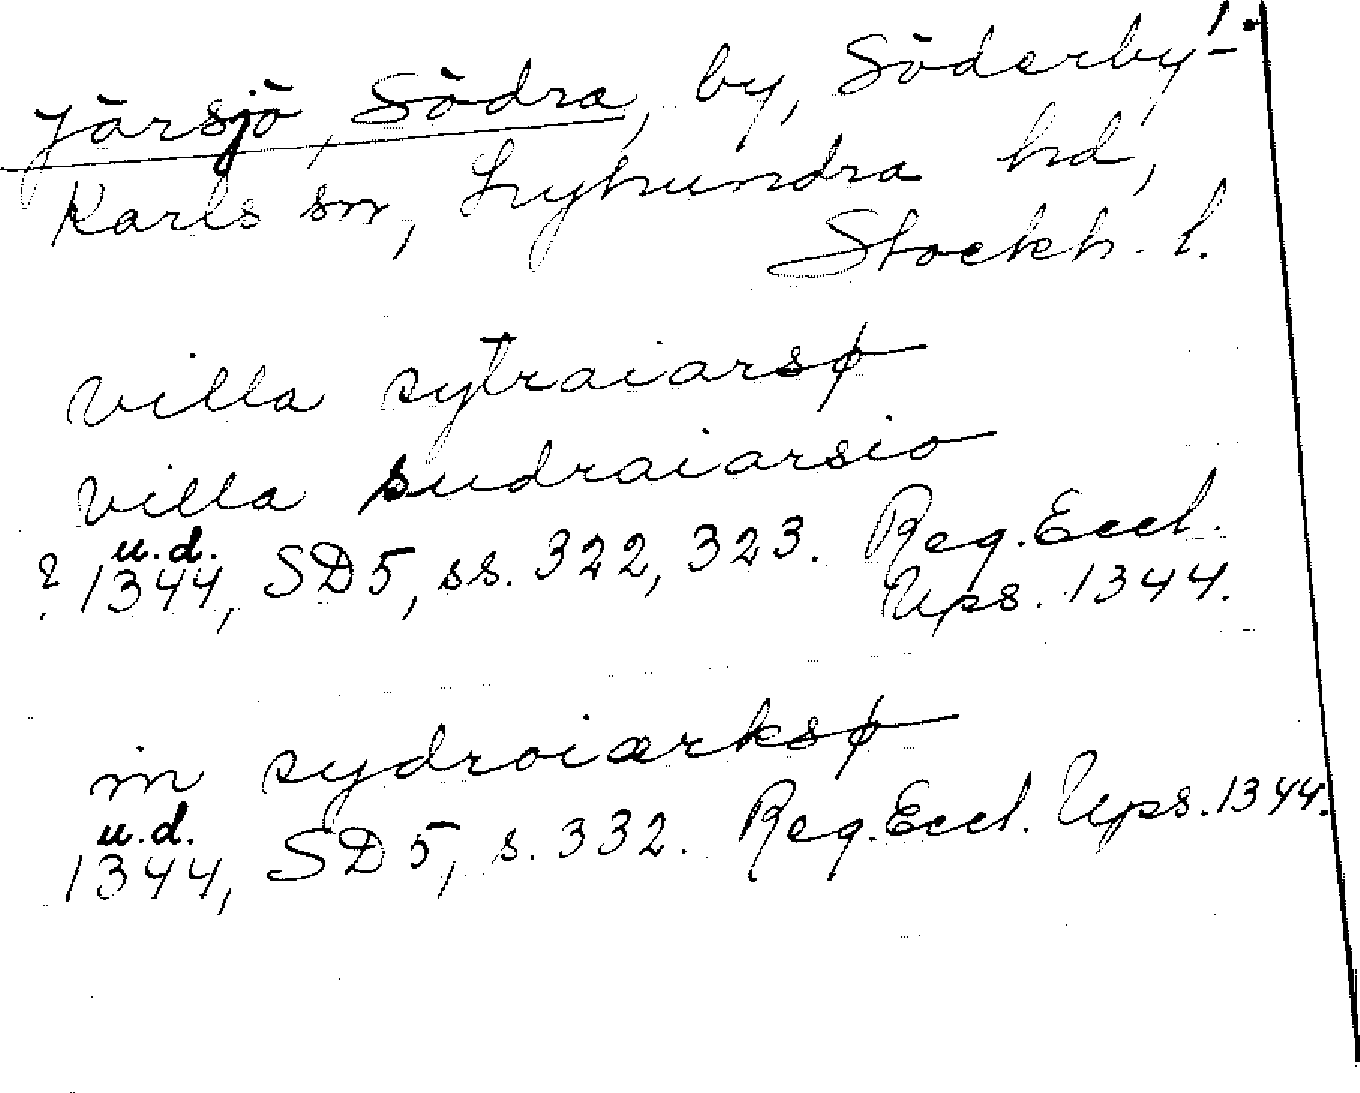 Järsjö, Södra, by, Söderby-
Karls sn, Lyhundra hd,
Stockh. l.
Villa sytraiarsø
Villa sudraiarsio
u.d.
? 1344, SD 5, ss. 322, 323. Reg. Eccl.
Ups. 1344.
in sydroiærksø
u.d.
1344, SD 5, s. 332. Reg. Eccl. Ups. 1344.